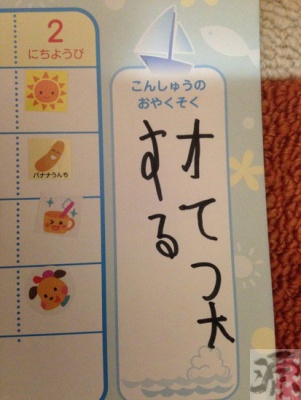 2
にちようび
バナナうんち
こんしゅうの
おやくそく
オてつ大
する
源